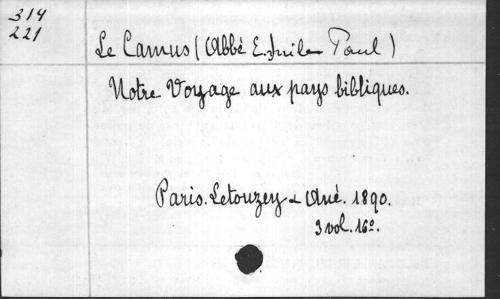 314
221
Le Camus (Abbé Emile Paul)
Notre Voyage aux pays bibliques.
Paris. Letouzey & Ané. 1890.
3 vol. 16º.